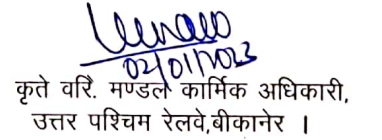 02/01/2023
कृते वरि. मण्डल कार्मिक अधिकारी,
उत्तर पश्चिम रेलवे,बीकानेर ।